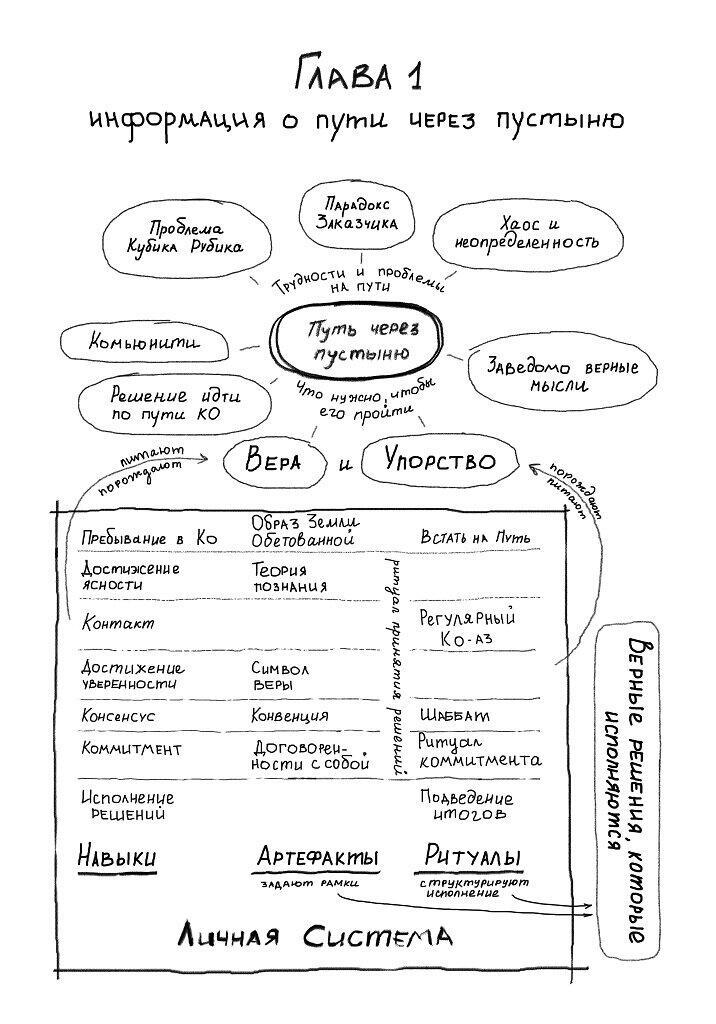 Глава 1
информация о пути через пустыню
Парадокс
Заказчика
Проблема
Кубика Рубика
Хаос и
неопределенность
Трудности и проблемы
на пути
Путь через
пустыню
Комьюнити
Заведомо верные
мысли
Решение идти
по пути КО
Что нужно, чтобы
его пройти
Вера и Упорство
питают
порождают
порождают
питают
Пребывание в Ко
Образ Земли
Обетованной
Встать на Путь
Достижение
ясности
Теория
познания
ритуал принятия решений
Контакт
Регулярный
Ко-аз
Достижение
уверенности
Символ
веры
Консенсус
Конвенция
Шаббат
Коммитмент
Договорен-
ности с собой
Ритуал
коммитмента
Исполнение
решений
Подведение
итогов
Навыки
Артефакты
задают рамки
Ритуалы
структурируют
исполнение
Личная Система
Верные решения, которые
исполняются